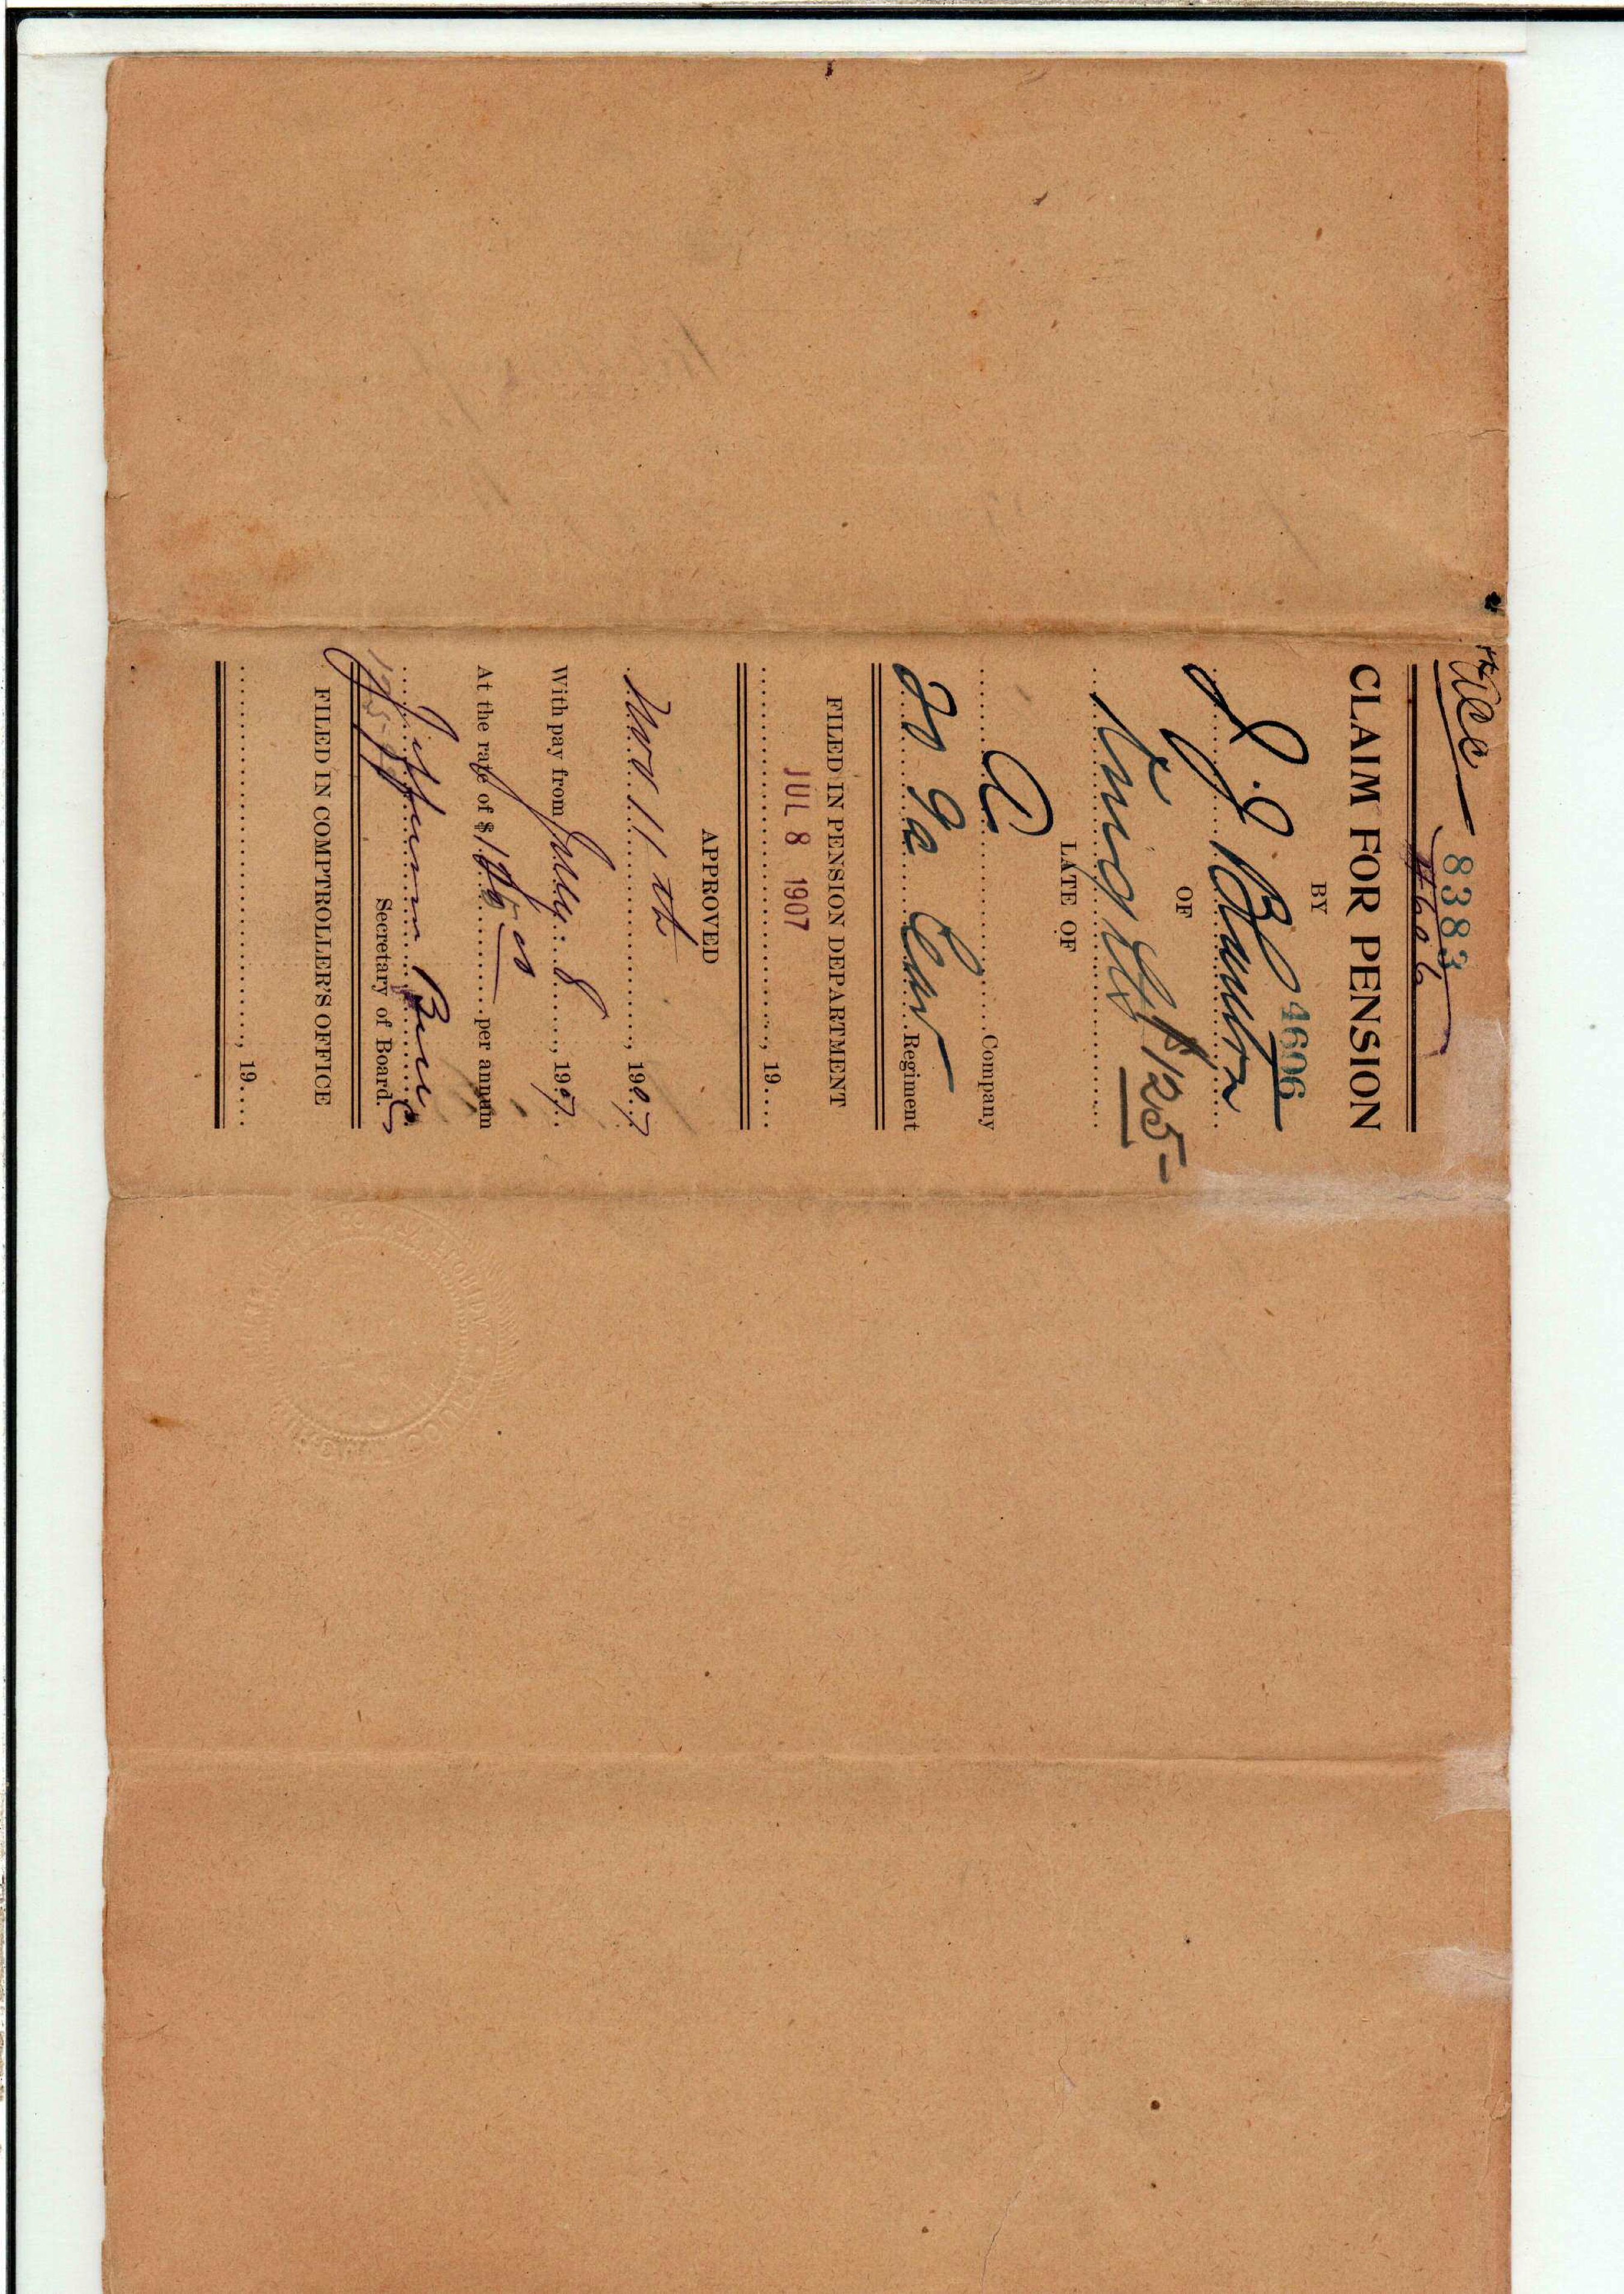 Acc
8383
4606
CLAIM FOR PENSION
BY
4606
OF
$125-
LATE OF
A Company
20 Ga Cav Regiment
FILED IN PENSION DEPARTMENT
JUL 8 1907
, 19
APPROVED
Nov 11th, 1907
With pay from July 8, 1907
At the rate of $ per annum
Secretary of Board.
FILED IN COMPTROLLER'S OFFICE
, 19